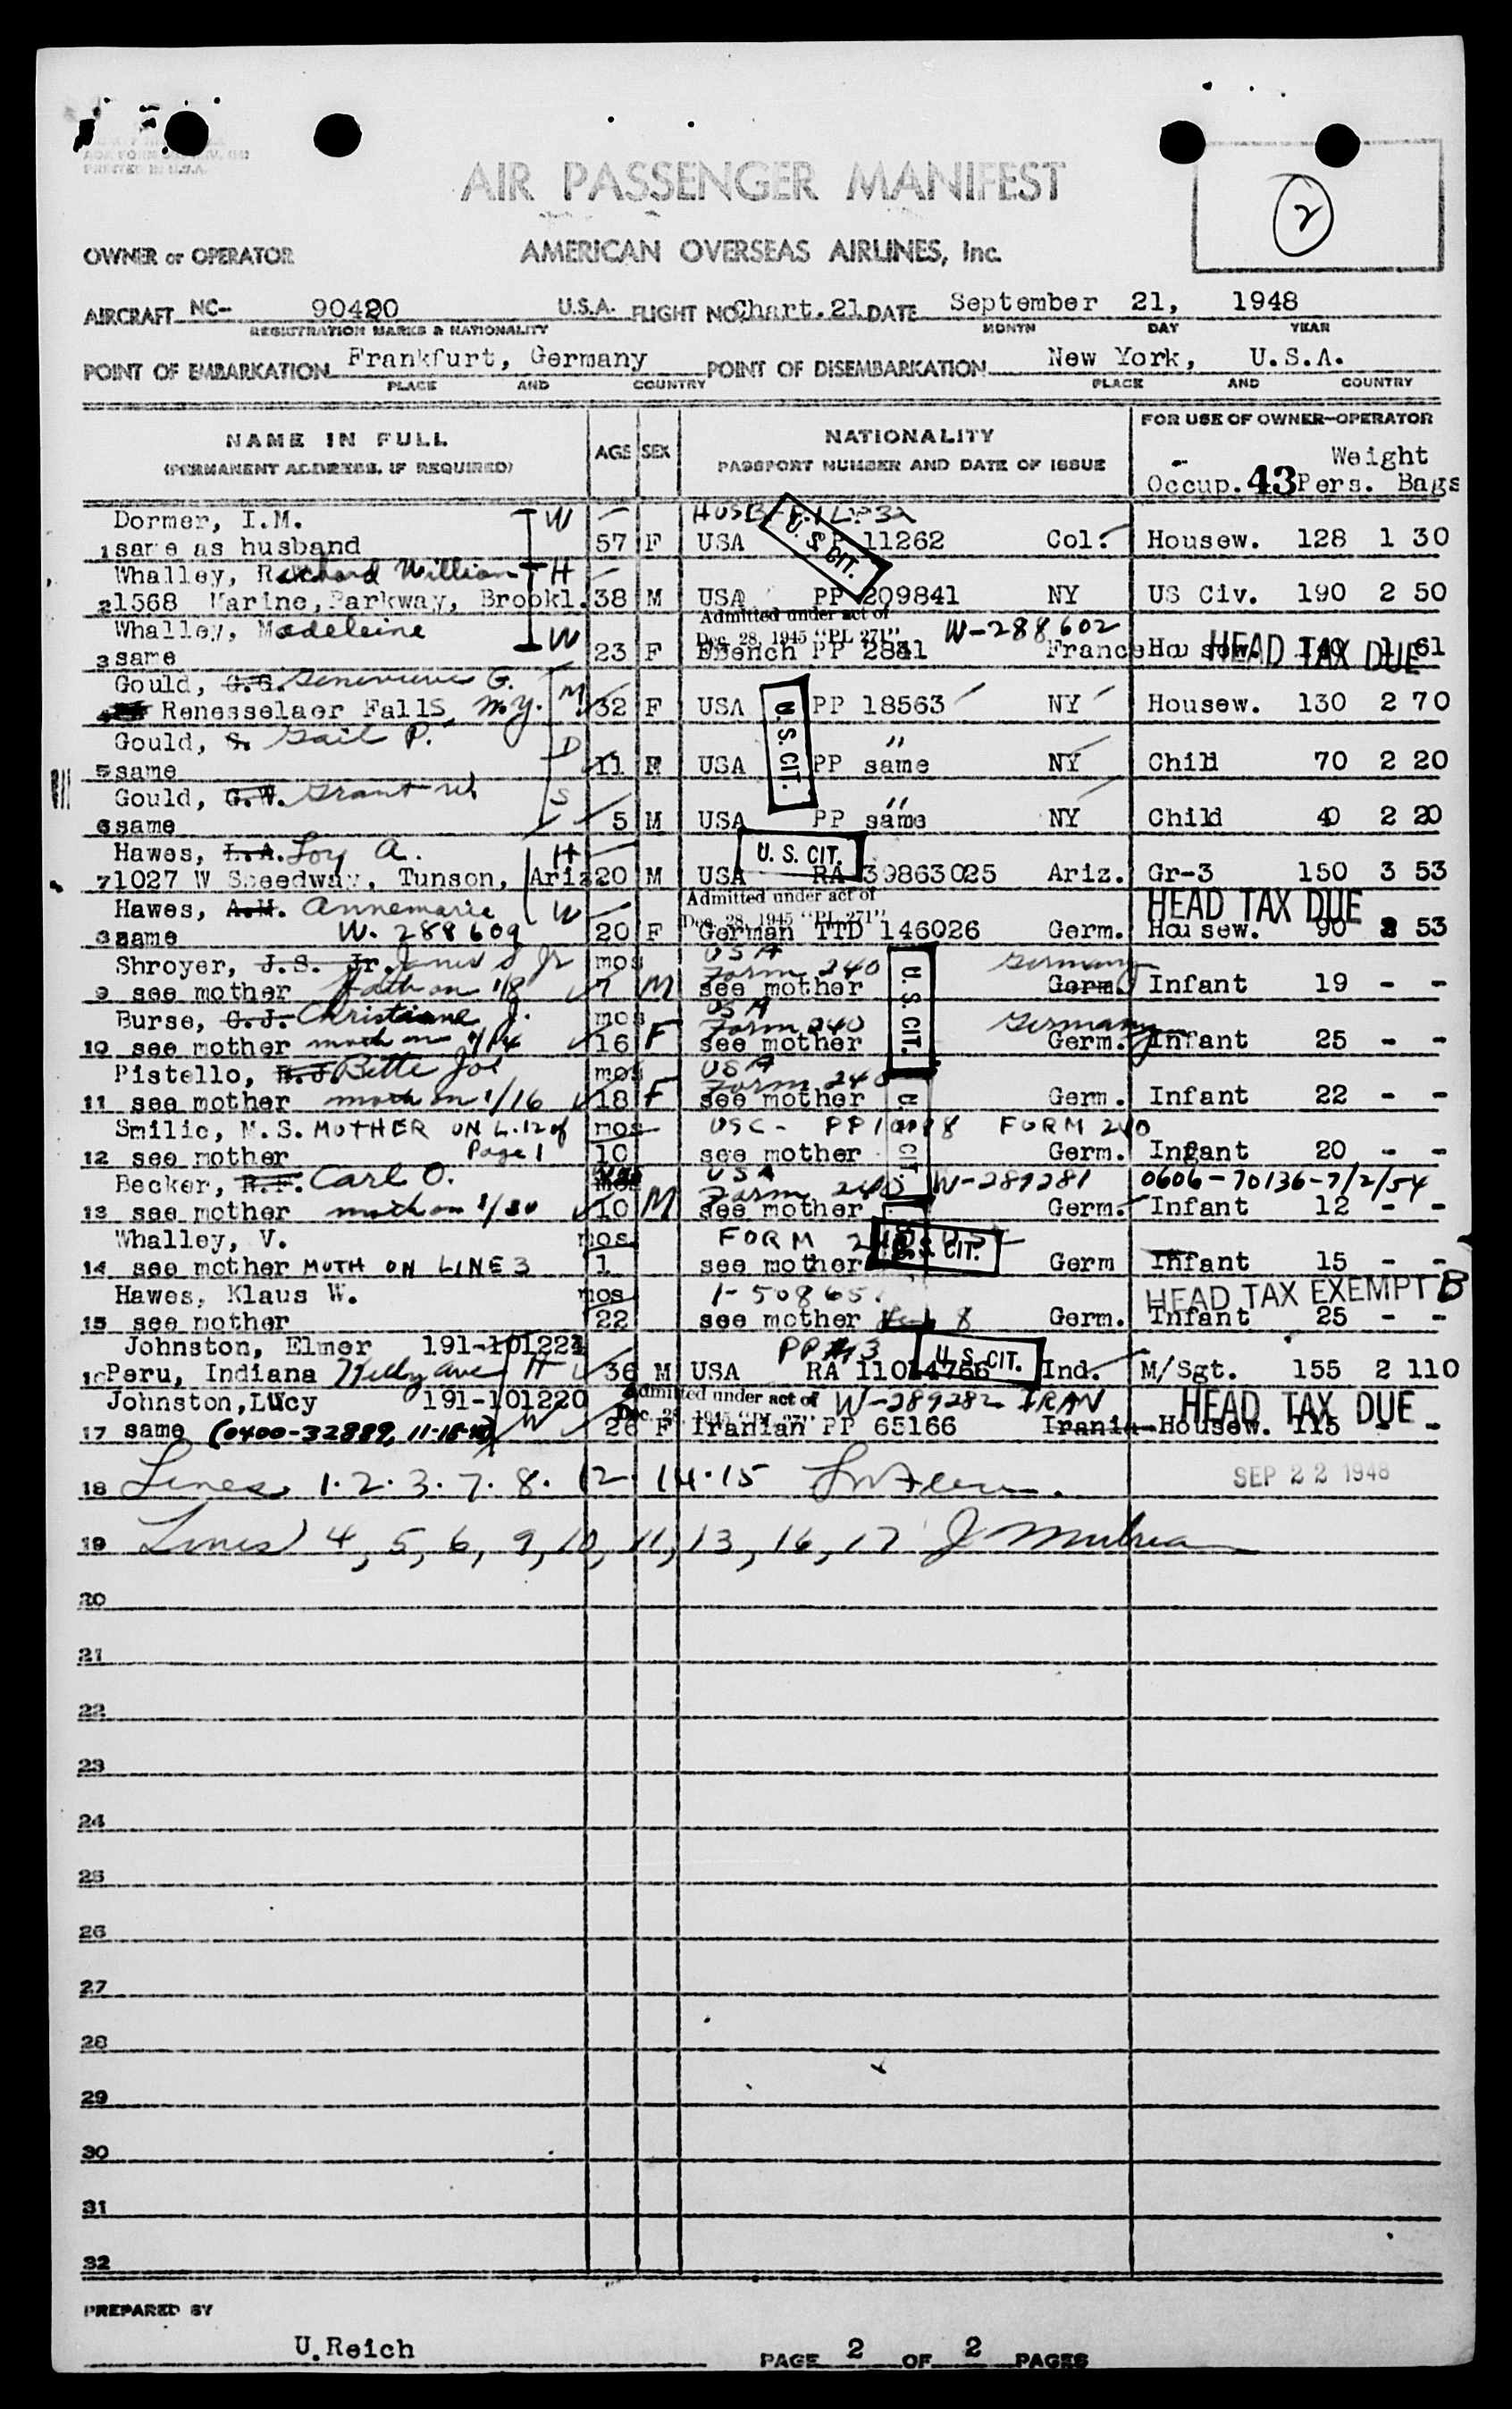 PRINTED IN U.S.A.
AIR PASSENGER MANIFEST
2
OWNER or OPERATOR AMERICAN OVERSEAS AIRLINES, Inc.
AIRCRAFT NC- 90420 U.S.A. FLIGHT NO. Chart.21 DATE September 21, 1948
REGISTRATION MARKS & NATIONALITY MONTH DAY YEAR
POINT OF EMBARKATION Frankfurt, Germany POINT OF DISEMBARKATION New York, U.S.A.
PLACE AND COUNTRY PLACE AND COUNTRY
NAME IN FULL
(PERMANENT ADDRESS, IF REQUIRED)
AGE SEX
NATIONALITY
PASSPORT NUMBER AND DATE OF ISSUE
FOR USE OF OWNER-OPERATOR
Weight
Occup. 43 Pers. Bags
Dormer, I.M. W
1 same as husband 57 F USA 11262 Col. Housew. 128 1 30
U. S. CIT.
Whalley, Richard William H
2 1568 Marine, Parkway, Brookl. 38 M USA PP 209841 NY US Civ. 190 2 50
Whalley, Madeleine W Admitted under act of Dec. 28, 1945 "PL 271" W-288602
3 same 23 F French PP 2841 France Housew. 1 61
HEAD TAX DUE
Gould, G.G. Genevieve G. M
4 Renesselaer Falls, N.Y. 32 F USA PP 18563 NY Housew. 130 2 70
U. S. CIT.
Gould, G. Gail P. D "
5 same 11 F USA PP same NY Child 70 2 20
Gould, G.W. Grant W. S "
6 same 5 M USA PP same NY Child 40 2 20
Hawes, L.A. Loy A. H U. S. CIT.
7 1027 W Speedway, Tunson, Ariz 20 M USA RA 39863025 Ariz. Gr-3 150 3 53
Hawes, A.M. Annemarie W Admitted under act of Dec. 28, 1945 "PL 271" HEAD TAX DUE
8 same W. 288609 20 F German TTD 146026 Germ. Housew. 90 2 53
Shroyer, J.S. Jr. James S Jr mos USA Form 240 Germany
9 see mother Fath on 1/8 7 M see mother Germ. Infant 19 - -
U. S. CIT.
Burse, C.J. Christiane J. mos USA Form 240 Germany
10 see mother moth on 1/14 16 F see mother Germ. Infant 25 - -
Pistello, B.J. Bette Joe mos USA Form 240
11 see mother moth on 1/16 18 F see mother Germ. Infant 22 - -
Smilie, M.S. MOTHER ON L.12 of Page 1 mos USC- FORM 240
12 see mother 10 see mother Germ. Infant 20 - -
Becker, R.F. Carl O. mos USA Form 240 W-289281 0606-70136-7/2/54
13 see mother moth on 1/30 10 M see mother Germ. Infant 12 - -
Whalley, V. mos. FORM 240 U. S. CIT.
14 see mother MOTH ON LINE 3 1 see mother Germ Infant 15 - -
Hawes, Klaus W. mos 1-50865 HEAD TAX EXEMPT B
15 see mother 22 see mother Germ. Infant 25 - -
Johnston, Elmer 191-101221 PP#13 U. S. CIT.
16 Peru, Indiana Kelly Ave H 36 M USA RA 11014766 Ind. M/Sgt. 155 2 110
Johnston, Lucy 191-101220 Admitted under act of Dec. 28, 1945 "PL 271" W-289282 IRAN HEAD TAX DUE
17 same (0400-32889, 11-18-) W 26 F Iranian PP 65166 Irania Housew. 115 - -
18 Lines 1.2.3.7.8.12.14.15 SEP 22 1948
19 Lines 4, 5, 6, 9, 10, 11, 13, 16, 17
20
21
22
23
24
25
26
27
28
29
30
31
32
PREPARED BY
U.Reich PAGE 2 OF 2 PAGES